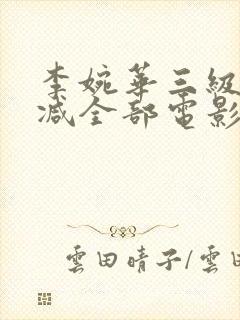 李婉華三級
减全部電影
雲田晴子/雲田